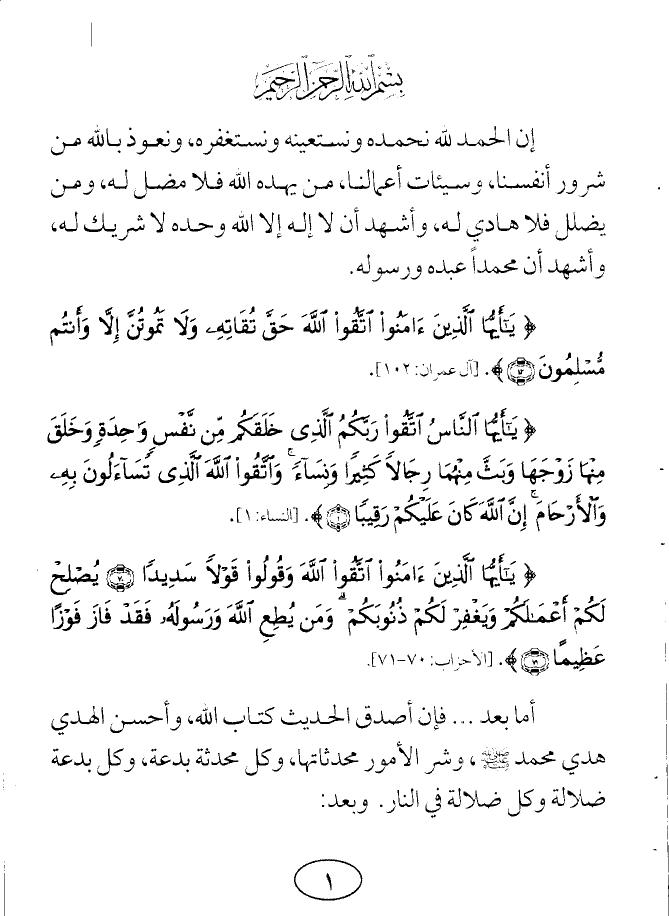 بسم الله الرحمن الرحيم
إن الحمد لله نحمده ونستعينه ونستغفره، ونعوذ بالله من
شرور أنفسنا، وسيئات أعمالنا، من يهده الله فلا مضل له، ومن
يضلل فلا هادي له، وأشهد أن لا إله إلا الله وحده لا شريك له،
وأشهد أن محمداً عبده ورسوله.
﴿ يَـٰٓأَيُّهَا ٱلَّذِينَ ءَامَنُوا۟ ٱتَّقُوا۟ ٱللَّهَ حَقَّ تُقَاتِهِۦ وَلَا تَمُوتُنَّ إِلَّا وَأَنتُم
مُّسْلِمُونَ ۝١٠٢﴾. [آل عمران: ١٠٢].
﴿ يَـٰٓأَيُّهَا ٱلنَّاسُ ٱتَّقُوا۟ رَبَّكُمُ ٱلَّذِى خَلَقَكُم مِّن نَّفْسٍ وَٰحِدَةٍ وَخَلَقَ
مِنْهَا زَوْجَهَا وَبَثَّ مِنْهُمَا رِجَالًا كَثِيرًا وَنِسَآءً ۚ وَٱتَّقُوا۟ ٱللَّهَ ٱلَّذِى تَسَآءَلُونَ بِهِۦ
وَٱلْأَرْحَامَ ۚ إِنَّ ٱللَّهَ كَانَ عَلَيْكُمْ رَقِيبًا ۝١﴾. [النساء: ١].
﴿ يَـٰٓأَيُّهَا ٱلَّذِينَ ءَامَنُوا۟ ٱتَّقُوا۟ ٱللَّهَ وَقُولُوا۟ قَوْلًا سَدِيدًا ۝٧٠ يُصْلِحْ
لَكُمْ أَعْمَـٰلَكُمْ وَيَغْفِرْ لَكُمْ ذُنُوبَكُمْ ۗ وَمَن يُطِعِ ٱللَّهَ وَرَسُولَهُۥ فَقَدْ فَازَ فَوْزًا
عَظِيمًا ۝٧١﴾. [الأحزاب: ٧٠-٧١].
أما بعد ... فإن أصدق الحديث كتاب الله، وأحسن الهدي
هدي محمد ﷺ، وشر الأمور محدثاتها، وكل محدثة بدعة، وكل بدعة
ضلالة وكل ضلالة في النار. وبعد:
١